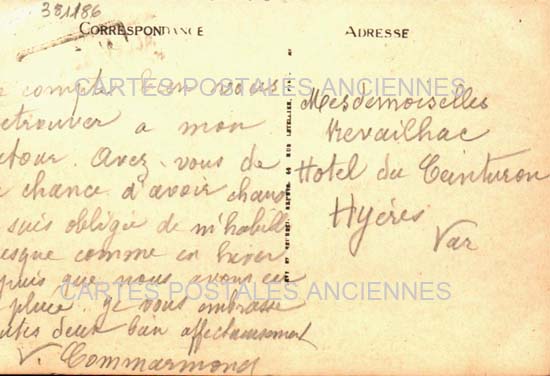 381186
CORRESPONDANCE
ADRESSE
compte bien vous
etrouver a mon
etour. Avez-vous de
chance d'avoir chaud
suis obligée de m'habill
esque comme en hiver
puis que nous avons eu
place. je vous embrasse
utes deux bien affectueusement
V. Commarmond
Mesdemoiselles
Revailhac
Hotel du Ceinturon
Hyères
Var
CARTES POSTALES ANCIENNES
CARTES POSTALES ANCIENNES